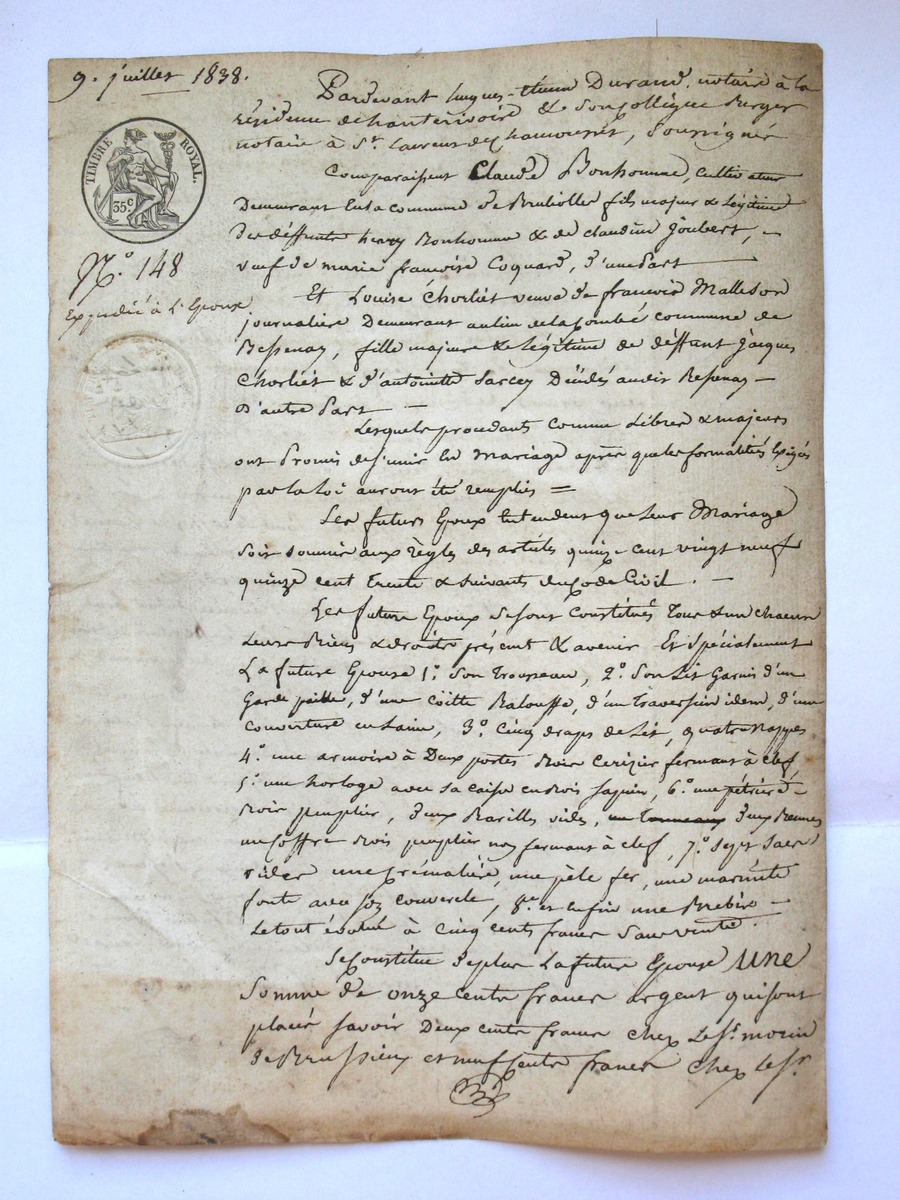 9. juillet 1838.
TIMBRE ROYAL.
35.c
N.o 148
Expédié à l'Epouse
Pardevant hugues-étienne Durand, notaire à la
résidence de chantérivoire & son Collègue Berger
notaire à St. Laurent de Chamousset, Soussignés
Comparaissent Claude Bonhomme, Cultivateur
Demeurant en la commune de Brullolles fils majeur & légitime
des déffunts henry Bonhomme & de claudine Joubert, –
veuf de marie françoise Coquard, d'une Part
Et Louise Chorliet veuve de françois Malleson
journalière Demeurant au lieu de la Combe commune de
Bessenay, fille majeure & légitime de déffunt Jacques
Chorliet & d'antoinette Sarcey Décédés audit Bessenay –
D'autre Part –
Lesquels procédants comme libres & majeurs
ont Promis de s'unir en Mariage après que les formalités Exigées
par la Loi auront été remplies =
Les futurs Epoux Entendent que leur Mariage
soit soumis aux règles des articles quinze cent vingt neuf
quinze cent trente & suivants du Code Civil. –
Les futurs Epoux se sont Constitués Tous & un chacun
leurs Biens & droits présent & avenir Et spécialement
La future Epouse 1.o Son Trousseau, 2.o Son Lit Garni d'un
Garde paille, d'une Coitte Balouffe, d'un Traversin idem, d'une
couverture en laine, 3.o Cinq draps de Lit, quatre nappes
4.o une armoire à Deux portes Bois Cerizier fermant à clef
5.o une horloge avec sa caisse en Bois sapin, 6.o une pétrière
Bois peuplier, deux Barilles vides, un tonneaux deux Bennes
un Coffre Bois peuplier non fermant à clef, 7.o Sept Sacs
vides une Crémaliére, une pèle fer, une marmite
fonte avec son couvercle, 8.o et enfin une Brebis –
Le tout évalué à Cinq cents francs Sans vente.
Se Constitue de plus La future Epouse une
Somme de onze cents francs argent qui sont
placés savoir Deux cents francs chez le Sr. morin
de Brussieux et neuf Cents francs chez le Sr.